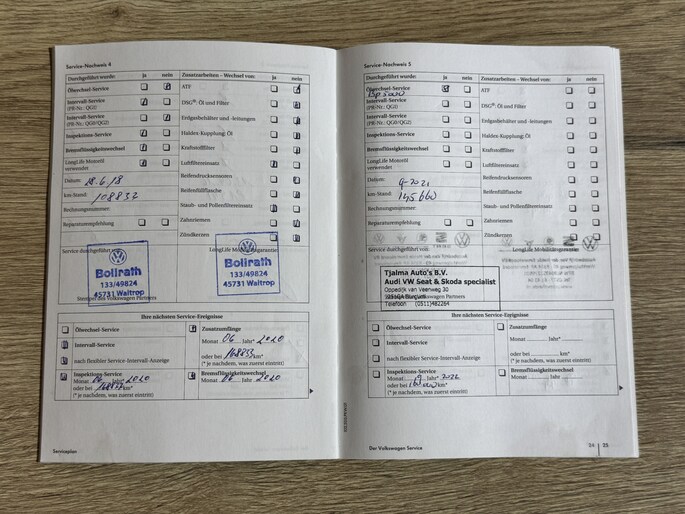 Service-Nachweis 4
Durchgeführt wurde: ja nein
Ölwechsel-Service
Intervall-Service
(PR-Nr.: QG1)
Intervall-Service
(PR-Nr.: QG0/QG2)
Inspektions-Service
Bremsflüssigkeitswechsel
LongLife Motoröl
verwendet
Datum: 18.6.18
km-Stand: 108833
Rechnungsnummer:
Reparaturempfehlung
Zusatzarbeiten – Wechsel von: ja nein
ATF
DSG®: Öl und Filter
Erdgasbehälter und -leitungen
Haldex-Kupplung: Öl
Kraftstofffilter
Luftfiltereinsatz
Reifendrucksensoren
Reifenfüllflasche
Staub- und Pollenfiltereinsatz
Zahnriemen
Zündkerzen
Service durchgeführt von:
LongLife Mobilitätsgarantie
Bollrath
133/49824
45731 Waltrop
Bollrath
133/49824
45731 Waltrop
Stempel des Volkswagen Partners
Ihre nächsten Service-Ereignisse
Ölwechsel-Service
Intervall-Service
nach flexibler Service-Intervall-Anzeige
Inspektions-Service
Monat 06 Jahr* 2020
oder bei km*
(* je nachdem, was zuerst eintritt)
Zusatzumfänge
Monat 06 Jahr* 2020
oder bei 168833 km*
(* je nachdem, was zuerst eintritt)
Bremsflüssigkeitswechsel
Monat 06 Jahr 2020
Serviceplan
Service-Nachweis 5
Durchgeführt wurde: ja nein
Ölwechsel-Service
Intervall-Service
(PR-Nr.: QG1)
Intervall-Service
(PR-Nr.: QG0/QG2)
Inspektions-Service
Bremsflüssigkeitswechsel
LongLife Motoröl
verwendet
Datum: 9-2021
km-Stand: 145.660
Rechnungsnummer:
Reparaturempfehlung
Zusatzarbeiten – Wechsel von: ja nein
ATF
DSG®: Öl und Filter
Erdgasbehälter und -leitungen
Haldex-Kupplung: Öl
Kraftstofffilter
Luftfiltereinsatz
Reifendrucksensoren
Reifenfüllflasche
Staub- und Pollenfiltereinsatz
Zahnriemen
Zündkerzen
Service durchgeführt von:
LongLife Mobilitätsgarantie
Tjalma Auto's B.V.
Audi VW Seat & Skoda specialist
Oppedijk van Veenweg 30
Telefoon (0511)482264
Ihre nächsten Service-Ereignisse
Ölwechsel-Service
Intervall-Service
nach flexibler Service-Intervall-Anzeige
Inspektions-Service
Monat 9 Jahr* 2022
oder bei km*
(* je nachdem, was zuerst eintritt)
Zusatzumfänge
Monat Jahr*
oder bei km*
(* je nachdem, was zuerst eintritt)
Bremsflüssigkeitswechsel
Monat Jahr
Der Volkswagen Service
24 | 25